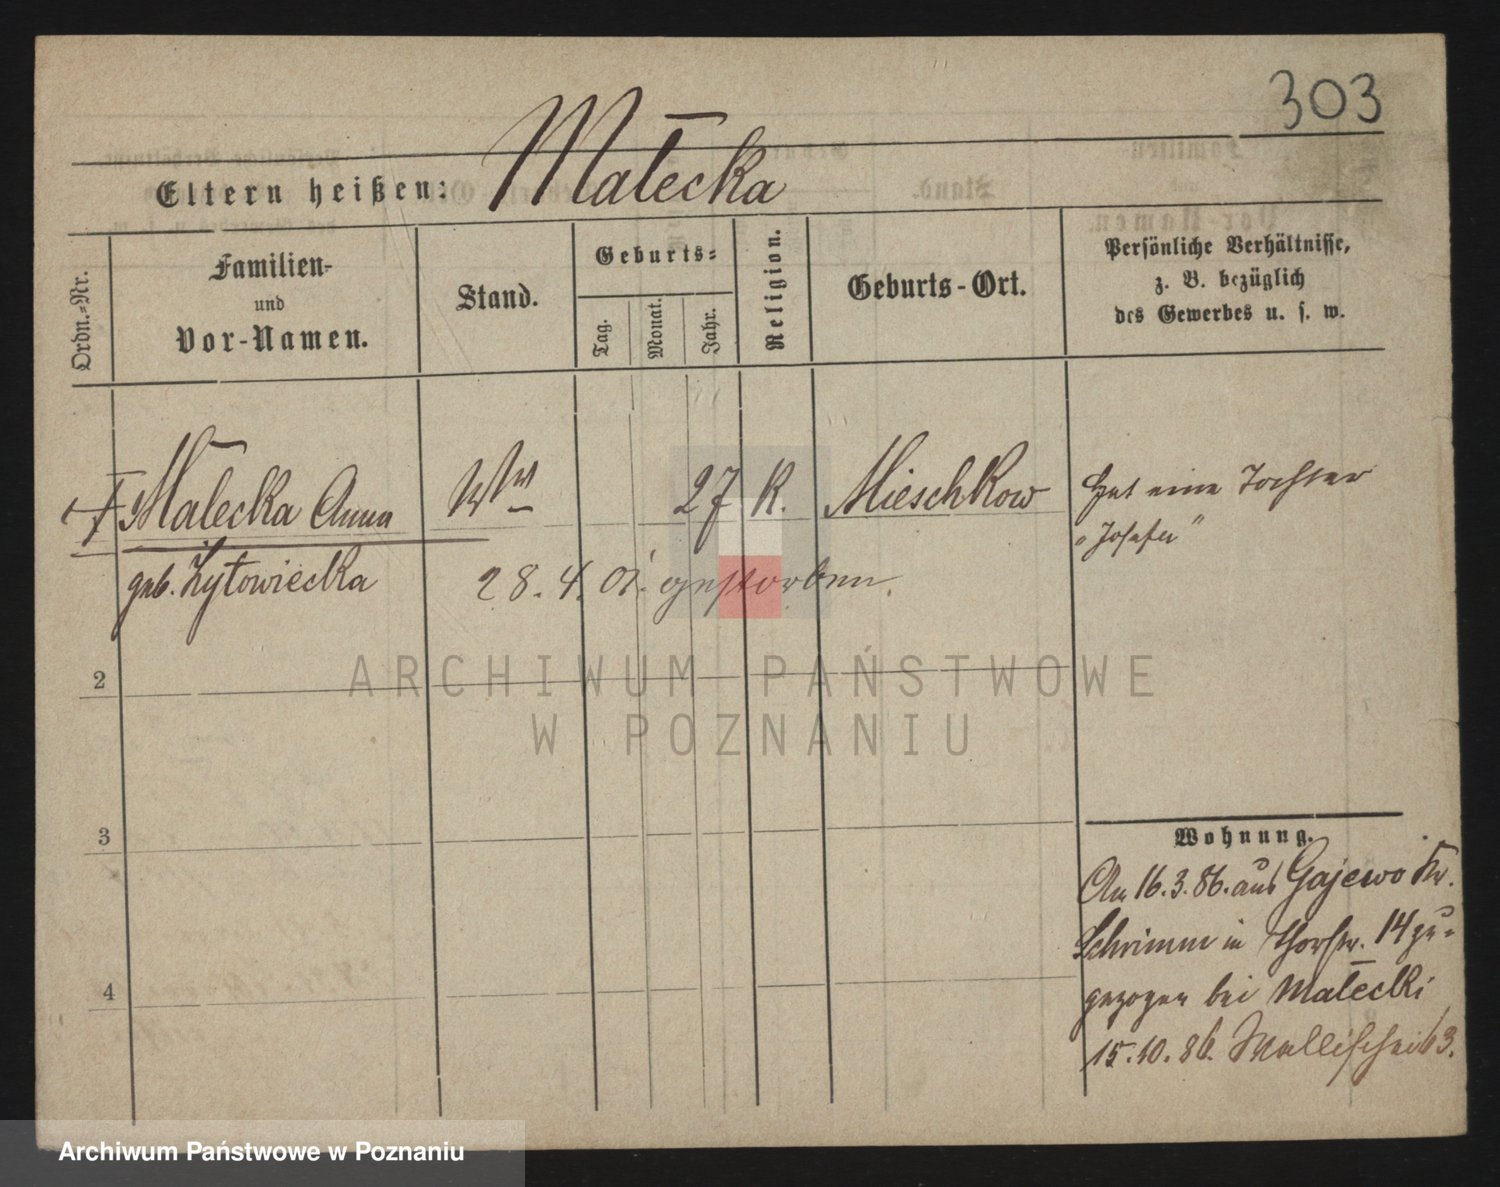 303
Eltern heißen: Małecka
Ordn.-Nr.
Familien-
und
Vor-Namen.
Stand.
Geburts-
Tag.
Monat.
Jahr.
Religion.
Geburts-Ort.
Persönliche Verhältnisse,
z. B. bezüglich
des Gewerbes u. s. w.
† Małecka Anna
Ww
27
K.
Mieschkow
Hat eine Tochter
„Josefa"
geb. Żytowiecka
28. 4. 01. gestorben.
2
3
4
Wohnung.
An 16. 3. 86. aus Gajewo Kr.
Schrimm in Thorstr. 14 zu-
gezogen bei Małecki
15. 10. 86. Wallischei 63.
ARCHIWUM PAŃSTWOWE
W POZNANIU
Archiwum Państwowe w Poznaniu